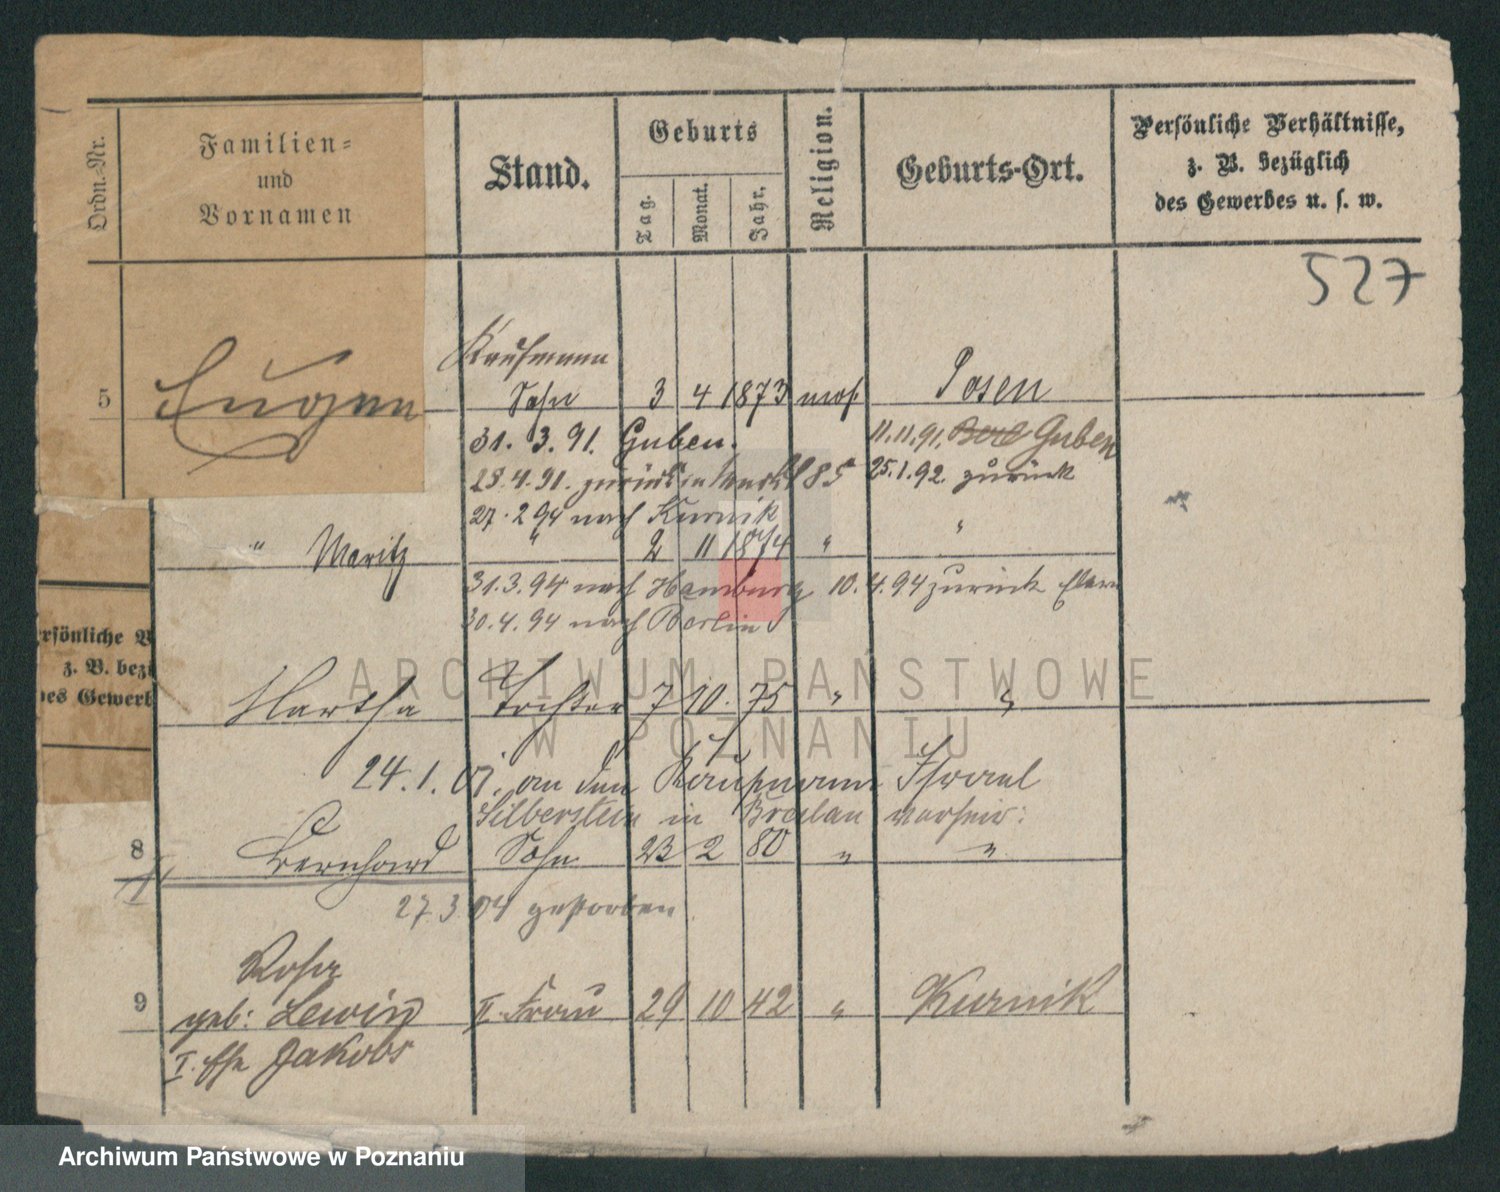 Ordn.-Nr.
Familien-
und
Vornamen
Stand.
Geburts
Tag.
Monat.
Jahr.
Religion.
Geburts-Ort.
Persönliche Verhältnisse,
z. B. bezüglich
des Gewerbes u. s. w.
527
Kaufmann
5 Eugen Sohn 3 4 1873 mos. Posen
31. 3. 91. Guben. 11.11.91. Guben
28.4.91. zurück 85 25.1.92. zurück
27. 2 94 nach Kurnik
" Moritz " 2 11 1874 " "
31.3.94 nach Hamburg 10.4.94 zurück
30.4.94 nach Berlin
ersönliche V
z. B. bezü
des Gewerb
Martha Tochter 7 10. 75 " "
24.1.07. an den Kaufmann Israel
Silberstein in Breslau verheir:
8 Bernhard Sohn 23 2 80 " "
27.3.04 gestorben
Rosa
9 geb: Lewin II. Frau 29 10 42 " Kurnik
I. Ehe Jakobs
ARCHIWUM PAŃSTWOWE
W POZNANIU
Archiwum Państwowe w Poznaniu